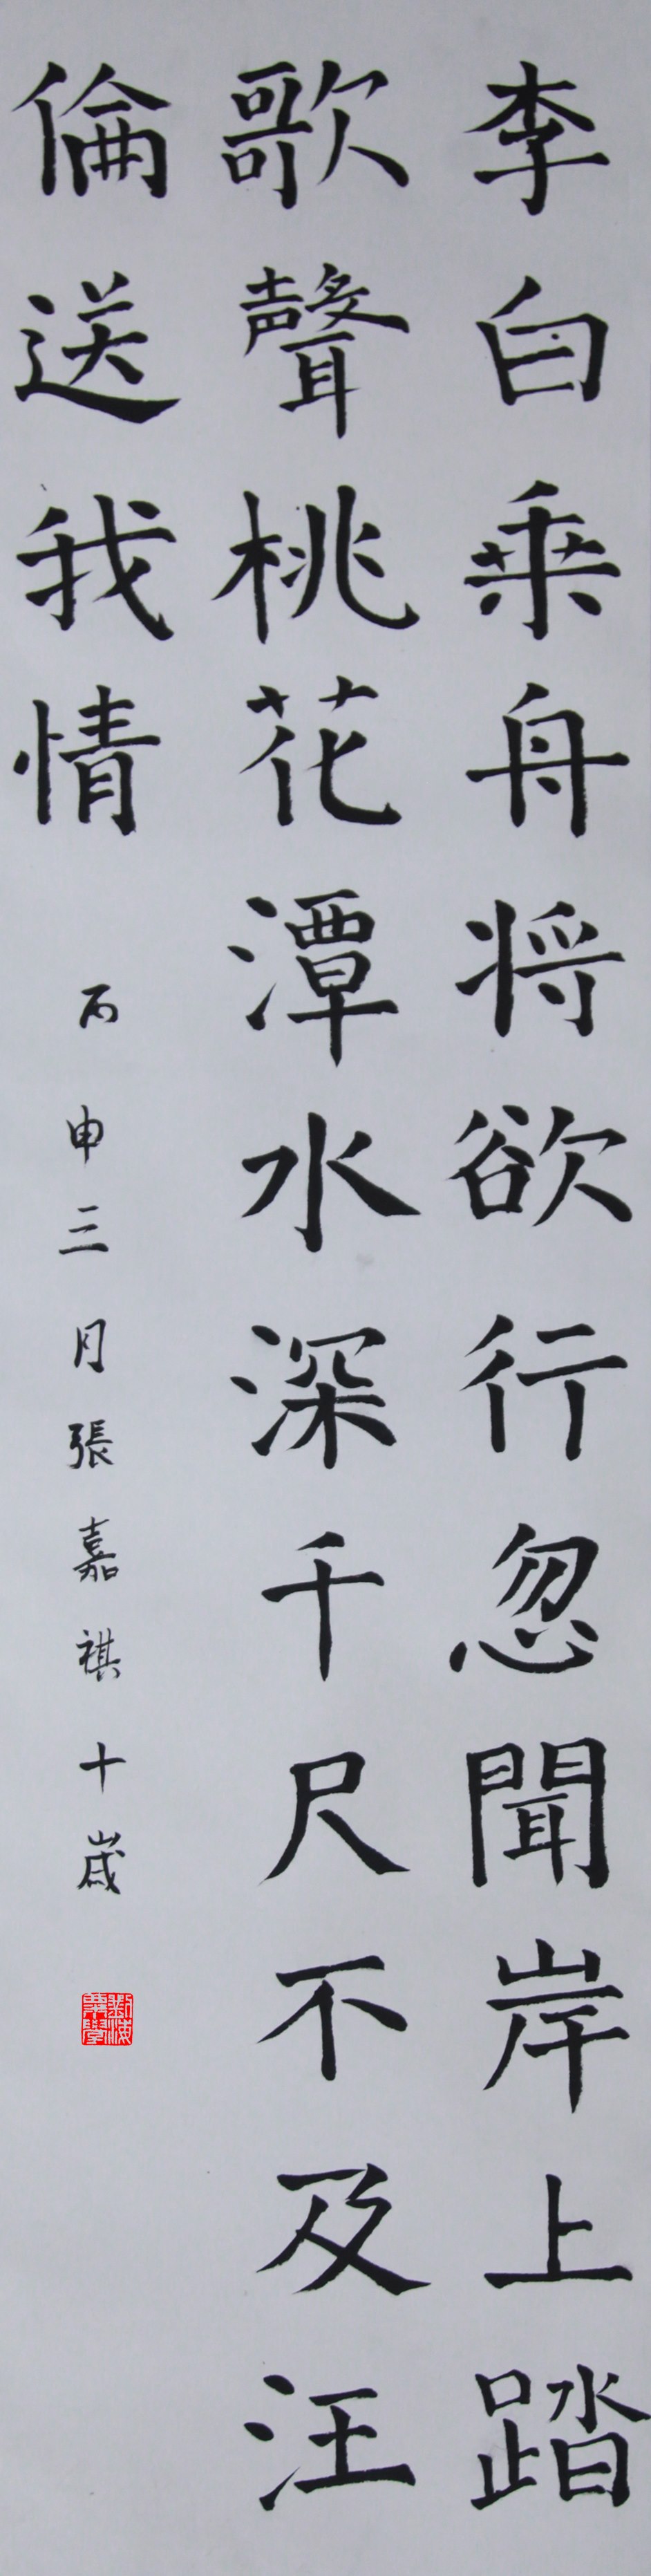 李白乘舟将欲行忽聞岸上踏
歌聲桃花潭水深千尺不及汪
倫送我情
丙申三月張嘉祺十歲